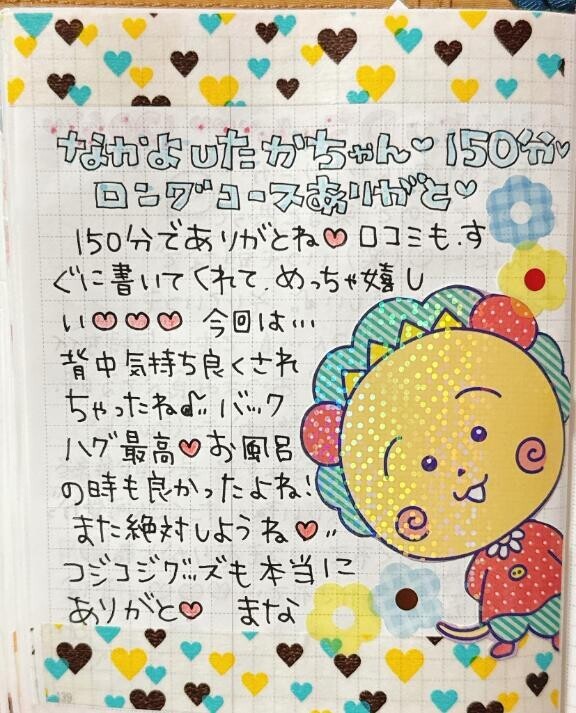 なかよしたかちゃん♡150分♡
ロングコースありがと♡
150分でありがとね♡ 口コミも、す
ぐに書いてくれて、めっちゃ嬉し
い♡♡♡ 今回は…
背中気持ち良くされ
ちゃったね♪ バック
ハグ最高♡お風呂
の時も良かったよね!
また絶対しようね♡
コジコジグッズも本当に
ありがと♡ まな
139